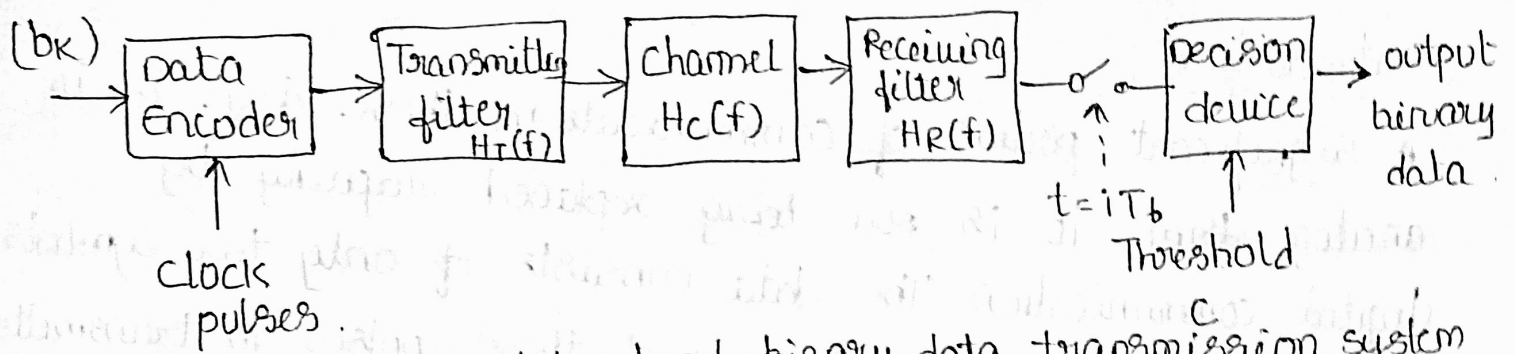 (bK)
Data
Encoder
Transmitting
filter
HT(f)
Channel
Hc(f)
Receiving
filter
HR(f)
Decison
device
output
binary
data.
t=iTb
Threshold
C
clock
pulses.
binary data transmission system